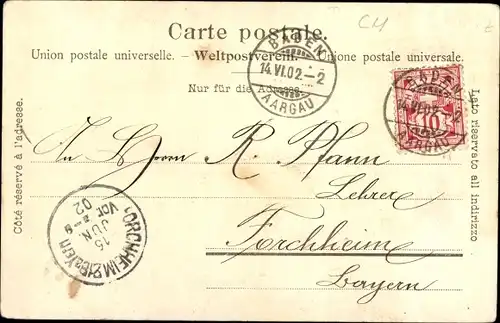 CM
Carte postale.
Union postale universelle. – Weltpostverein. – Unione postale universale.
Nur für die Adresse.
BADEN
14.VI.02.–2
AARGAU
BADEN
14.VI.02.–2
AARGAU
10
Côté réservé à l'adresse.
Lato riservato all indirizzo
Herrn R. Pfann
Lehrer
Forchheim
Bayern
FORCHHEIM
15
JUN
02
Vor